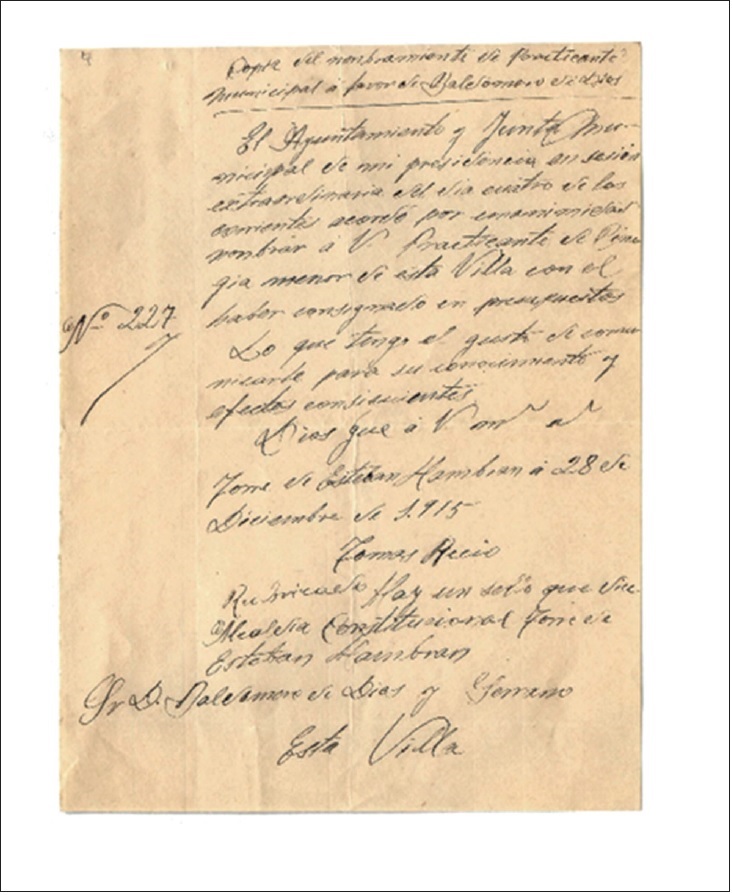 Copia del nombramiento de Practicante
Municipal á favor de Baldomero de Dios
El Ayuntamiento y Junta Mu-
nicipal de mi presidencia en sesión
extraordinaria del dia cuatro de los
corrientes acordó por unanimidad
nombrar á V Practicante de Ciru-
gia menor de esta Villa con el
haber consignado en presupuestos
Nº 227
Lo que tengo el gusto de comu-
nicarle para su conocimiento y
efectos consiguientes
Dios gue á V mˢ aˢ
Torre de Esteban Hambran á 28 de
Diciembre de 1.915
Tomas Recio
Rubricado Hay un sello que dice
Alcaldia Constitucional Torre de
Esteban Hambran
Sr D. Baldomero de Dios y Serrano
Esta Villa